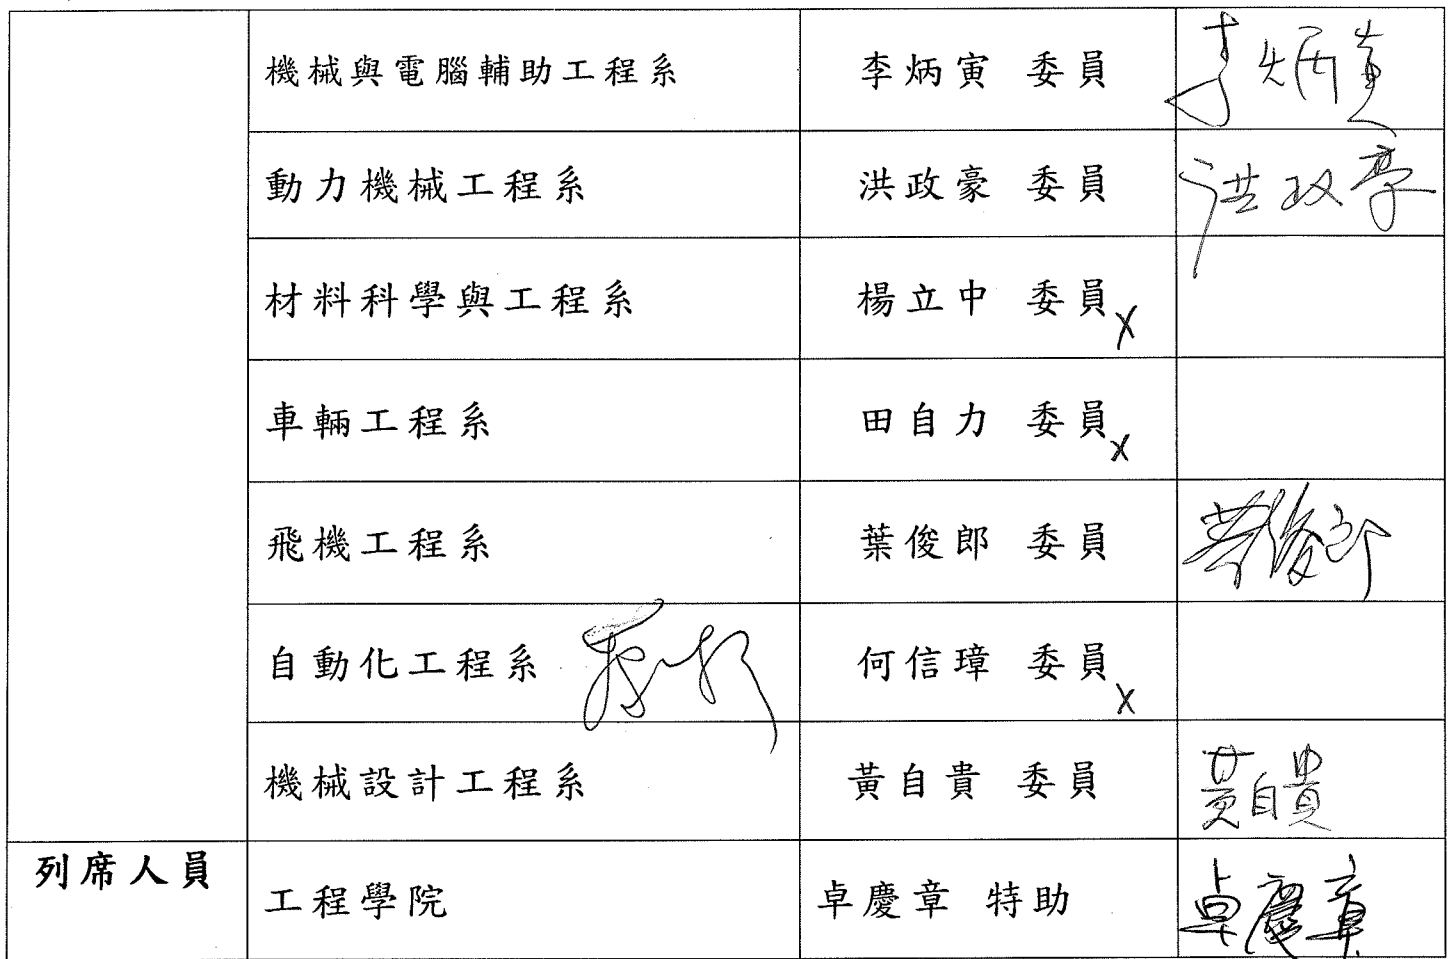 機械與電腦輔助工程系 李炳寅 委員 李炳寅
動力機械工程系 洪政豪 委員 洪政豪
材料科學與工程系 楊立中 委員 x
車輛工程系 田自力 委員 x
飛機工程系 葉俊郎 委員 葉俊郎
自動化工程系 何信璋 委員 x
機械設計工程系 黃自貴 委員 黃自貴
列席人員 工程學院 卓慶章 特助 卓慶章